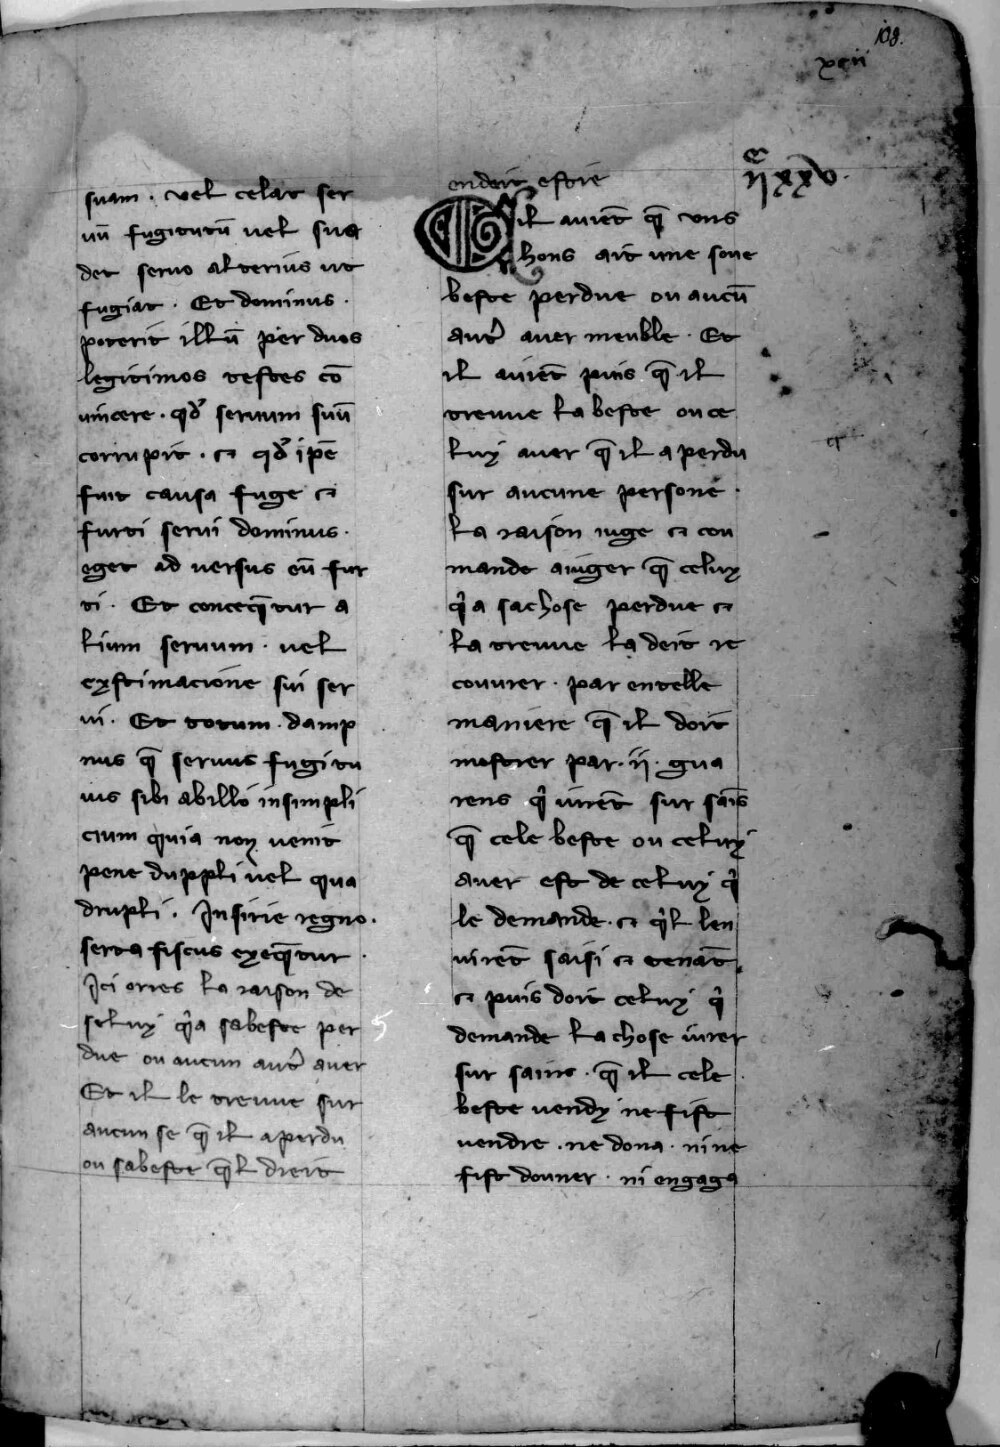 108.
xcii
suam . vel celat ser
uū fugitiuū uel sua
det seruo alterius ut
fugiat . Et dominus .
poterit illū per duos
legitimos testes cō
uincere . qđ seruum suū
corrupit . ⁊ qđ ip̄e
fuit causa fuge ⁊
furti serui dominus .
eget ad uersus eū fur
ti . Et conceq̄tur a
lium seruum . uel
exstimacione sui ser
ui . Et totum . damp
nus q̄ seruus fugitu
uis sibi abillo insimpli
cium quia non uenit
pene duppli uel qua
drupli . In sirie regno .
serta fiscus exeq̄tur .
Ici orres la raison de
seluy q̉a sabeste per
due ou aucun aut̉ auer
Et il le treuue sur
aucun se q̄ il a perdu
ou sabeste q̄l dreit
endeit estre
ii xxv .
Cil auiēt q̄ vns
hons ait une soue
beste perdue ou aucū
aut̉ auer meuble . Et
il auiēt puis q̄ il
treuue la beste ou ce
luy auer q̄ il a perdu
sur aucune persone .
la raison iuge ⁊ cou
mande aiuger q̄ celuy
q̉ a sachose perdue ⁊
la treuue la deit re
couurer . par entelle
maniere q̄ il doit
mostrer par . ii . gua
rens q̉ iurēt sur sains
q̄ cele beste ou celuy
auer est de celuy q̉
le demande . ⁊ q̉l len
uirēt saisi ⁊ tenāt .
⁊ puis doit celuy q̉
demande la chose iurer
sur sains . q̄ il cele
beste uendy ne fist
uendre . ne dona . ni ne
fist douner . ni engaga